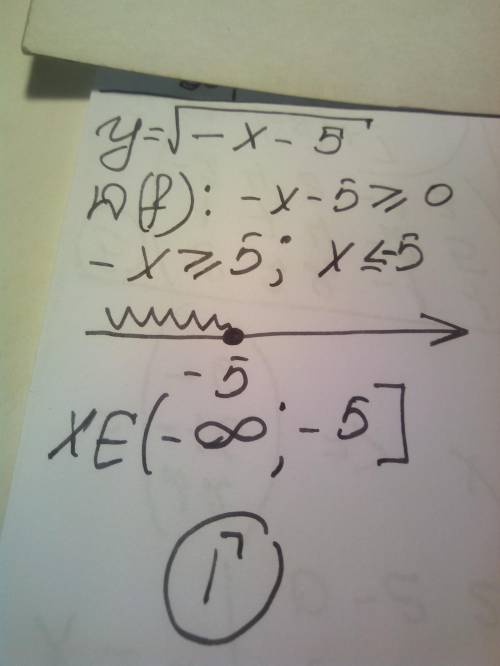 y=√-x-5
D(f): -x-5⩾0
-x⩾5; x≤-5
-5
x∈(-∞; -5]
1)